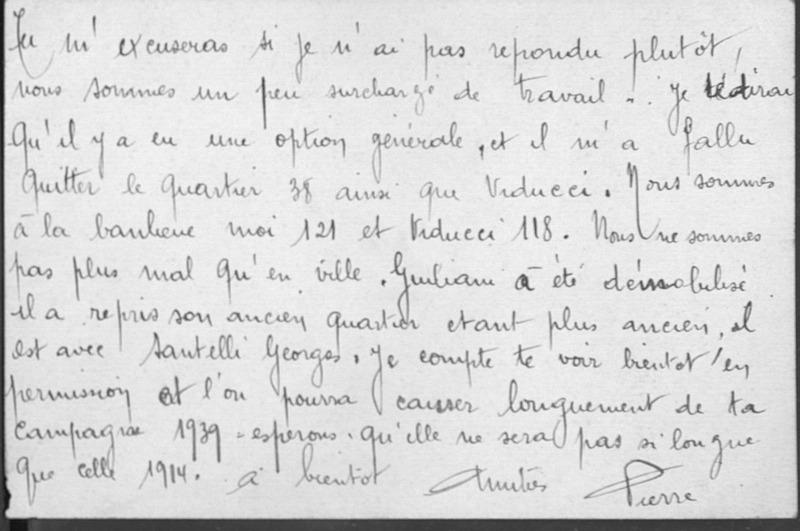 Tu m'excuseras si je n'ai pas repondu plutôt,
nous sommes un peu surchargé de travail. Je te dirai
qu'il y a eu une option générale, et il m'a fallu
quitter le quartier 38 ainsi que Viducci. Nous sommes
à la banlieue moi 121 et Viducci 118. Nous ne sommes
pas plus mal qu'en ville. Giuliani a été démobilisé
il a repris son ancien quartier etant plus ancien, il
est avec Santelli Georges. Je compte te voir bientot en
permission et l'on pourra causer longuement de ta
campagne 1939 - espérons qu'elle ne sera pas si longue
que celle 1914. à bientot Amitiés Pierre